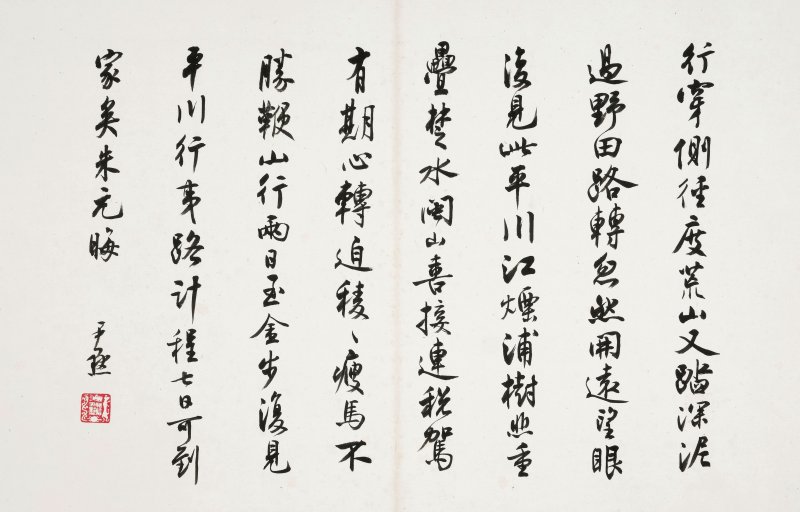 行穿側徑度荒山又踏深泥
過野田路轉忽然開遠望眼
復見此平川江煙浦樹悲重
疊楚水閩山喜接連稅駕
有期心轉迫稜〻瘦馬不
勝鞭山行兩日至金步復見
平川行夷路計程七日可到
家矣朱元晦
尹默